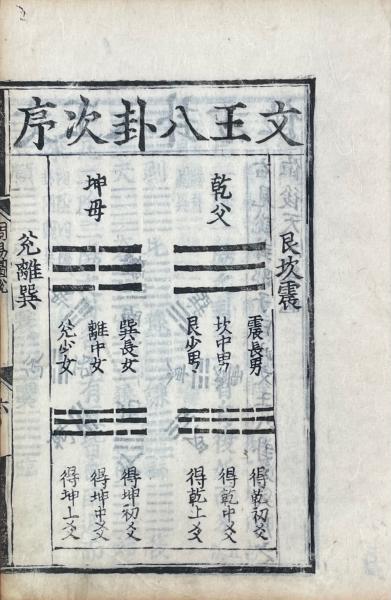 文王八卦次序
艮坎震
乾父
震長男
坎中男
艮少男
得乾初爻
得乾中爻
得乾上爻
坤母
巽長女
離中女
兌少女
得坤初爻
得坤中爻
得坤上爻
兌離巽
六